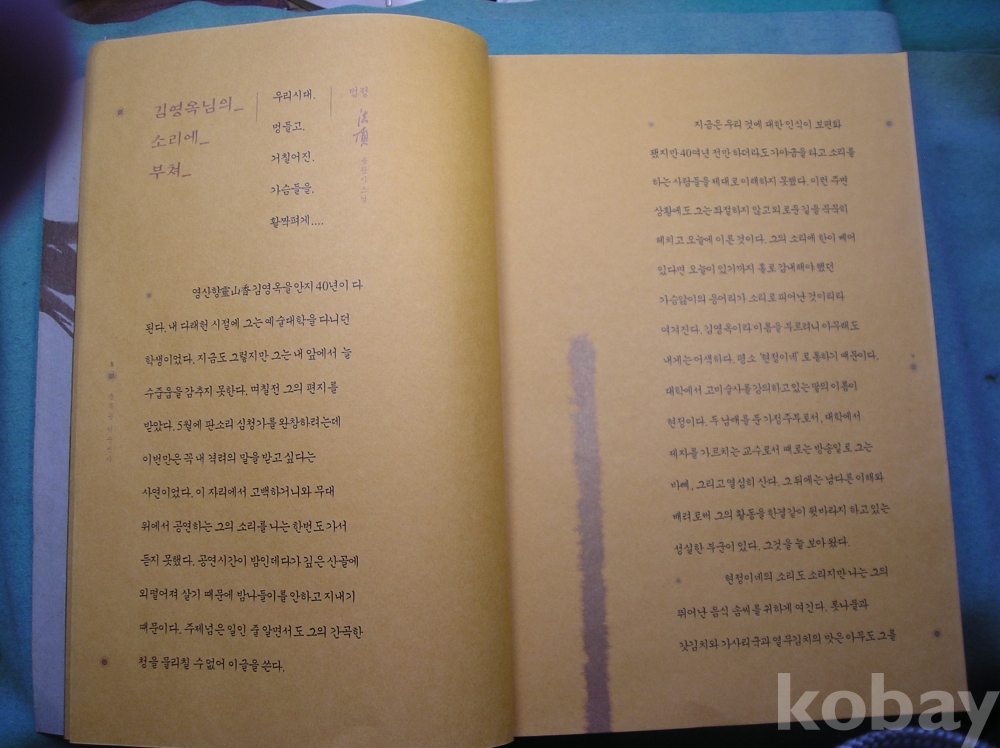 김영옥님의_
소리에_
부쳐_
우리시대.
멍들고.
거칠어진.
가슴들을.
활짝펴게....
법정
法頂
영산향靈山香 김영옥을 안지 40년이 다
된다. 내 다래헌 시절에 그는 예술대학을 다니던
학생이었다. 지금도 그렇지만 그는 내 앞에서 늘
수줍음을 감추지 못한다. 며칠전 그의 편지를
받았다. 5월에 판소리 심청가를 완창하려는데
이번만은 꼭 내 격려의 말을 받고 싶다는
사연이었다. 이 자리에서 고백하거니와 무대
위에서 공연하는 그의 소리를 나는 한번도 가서
듣지 못했다. 공연시간이 밤인데다가 깊은 산골에
외떨어져 살기 때문에 밤나들이를 안하고 지내기
때문이다. 주제넘은 일인 줄 알면서도 그의 간곡한
청을 물리칠 수 없어 이글을 쓴다.
지금은 우리 것에 대한 인식이 보편화
됐지만 40여년 전만 하더라도 가야금을 타고 소리를
하는 사람들을 제대로 이해하지 못했다. 이런 주변
상황에도 그는 좌절하지 않고 외로운 길을 묵묵히
헤치고 오늘에 이른 것이다. 그의 소리에 한이 베어
있다면 오늘이 있기까지 홀로 감내해야 했던
가슴앓이의 응어리가 소리로 피어난 것이리라
여겨진다. 김영옥이라 이름을 부르려니 아무래도
내게는 어색하다. 평소 '현정이네'로 통하기 때문이다.
대학에서 고미술사를 강의하고 있는 딸의 이름이
현정이다. 두 남매를 둔 가정주부로서, 대학에서
제자를 가르치는 교수로서 때로는 방송일로 그는
바삐, 그리고 열심히 산다. 그 뒤에는 남다른 이해와
배려로써 그의 활동을 한결같이 뒷바라지 하고 있는
성실한 부군이 있다. 그것을 늘 보아 왔다.
현정이네의 소리도 소리지만 나는 그의
뛰어난 음식 솜씨를 귀하게 여긴다. 봄나물과
갓김치와 가사리국과 열무김치의 맛은 아무도 그를
kobay